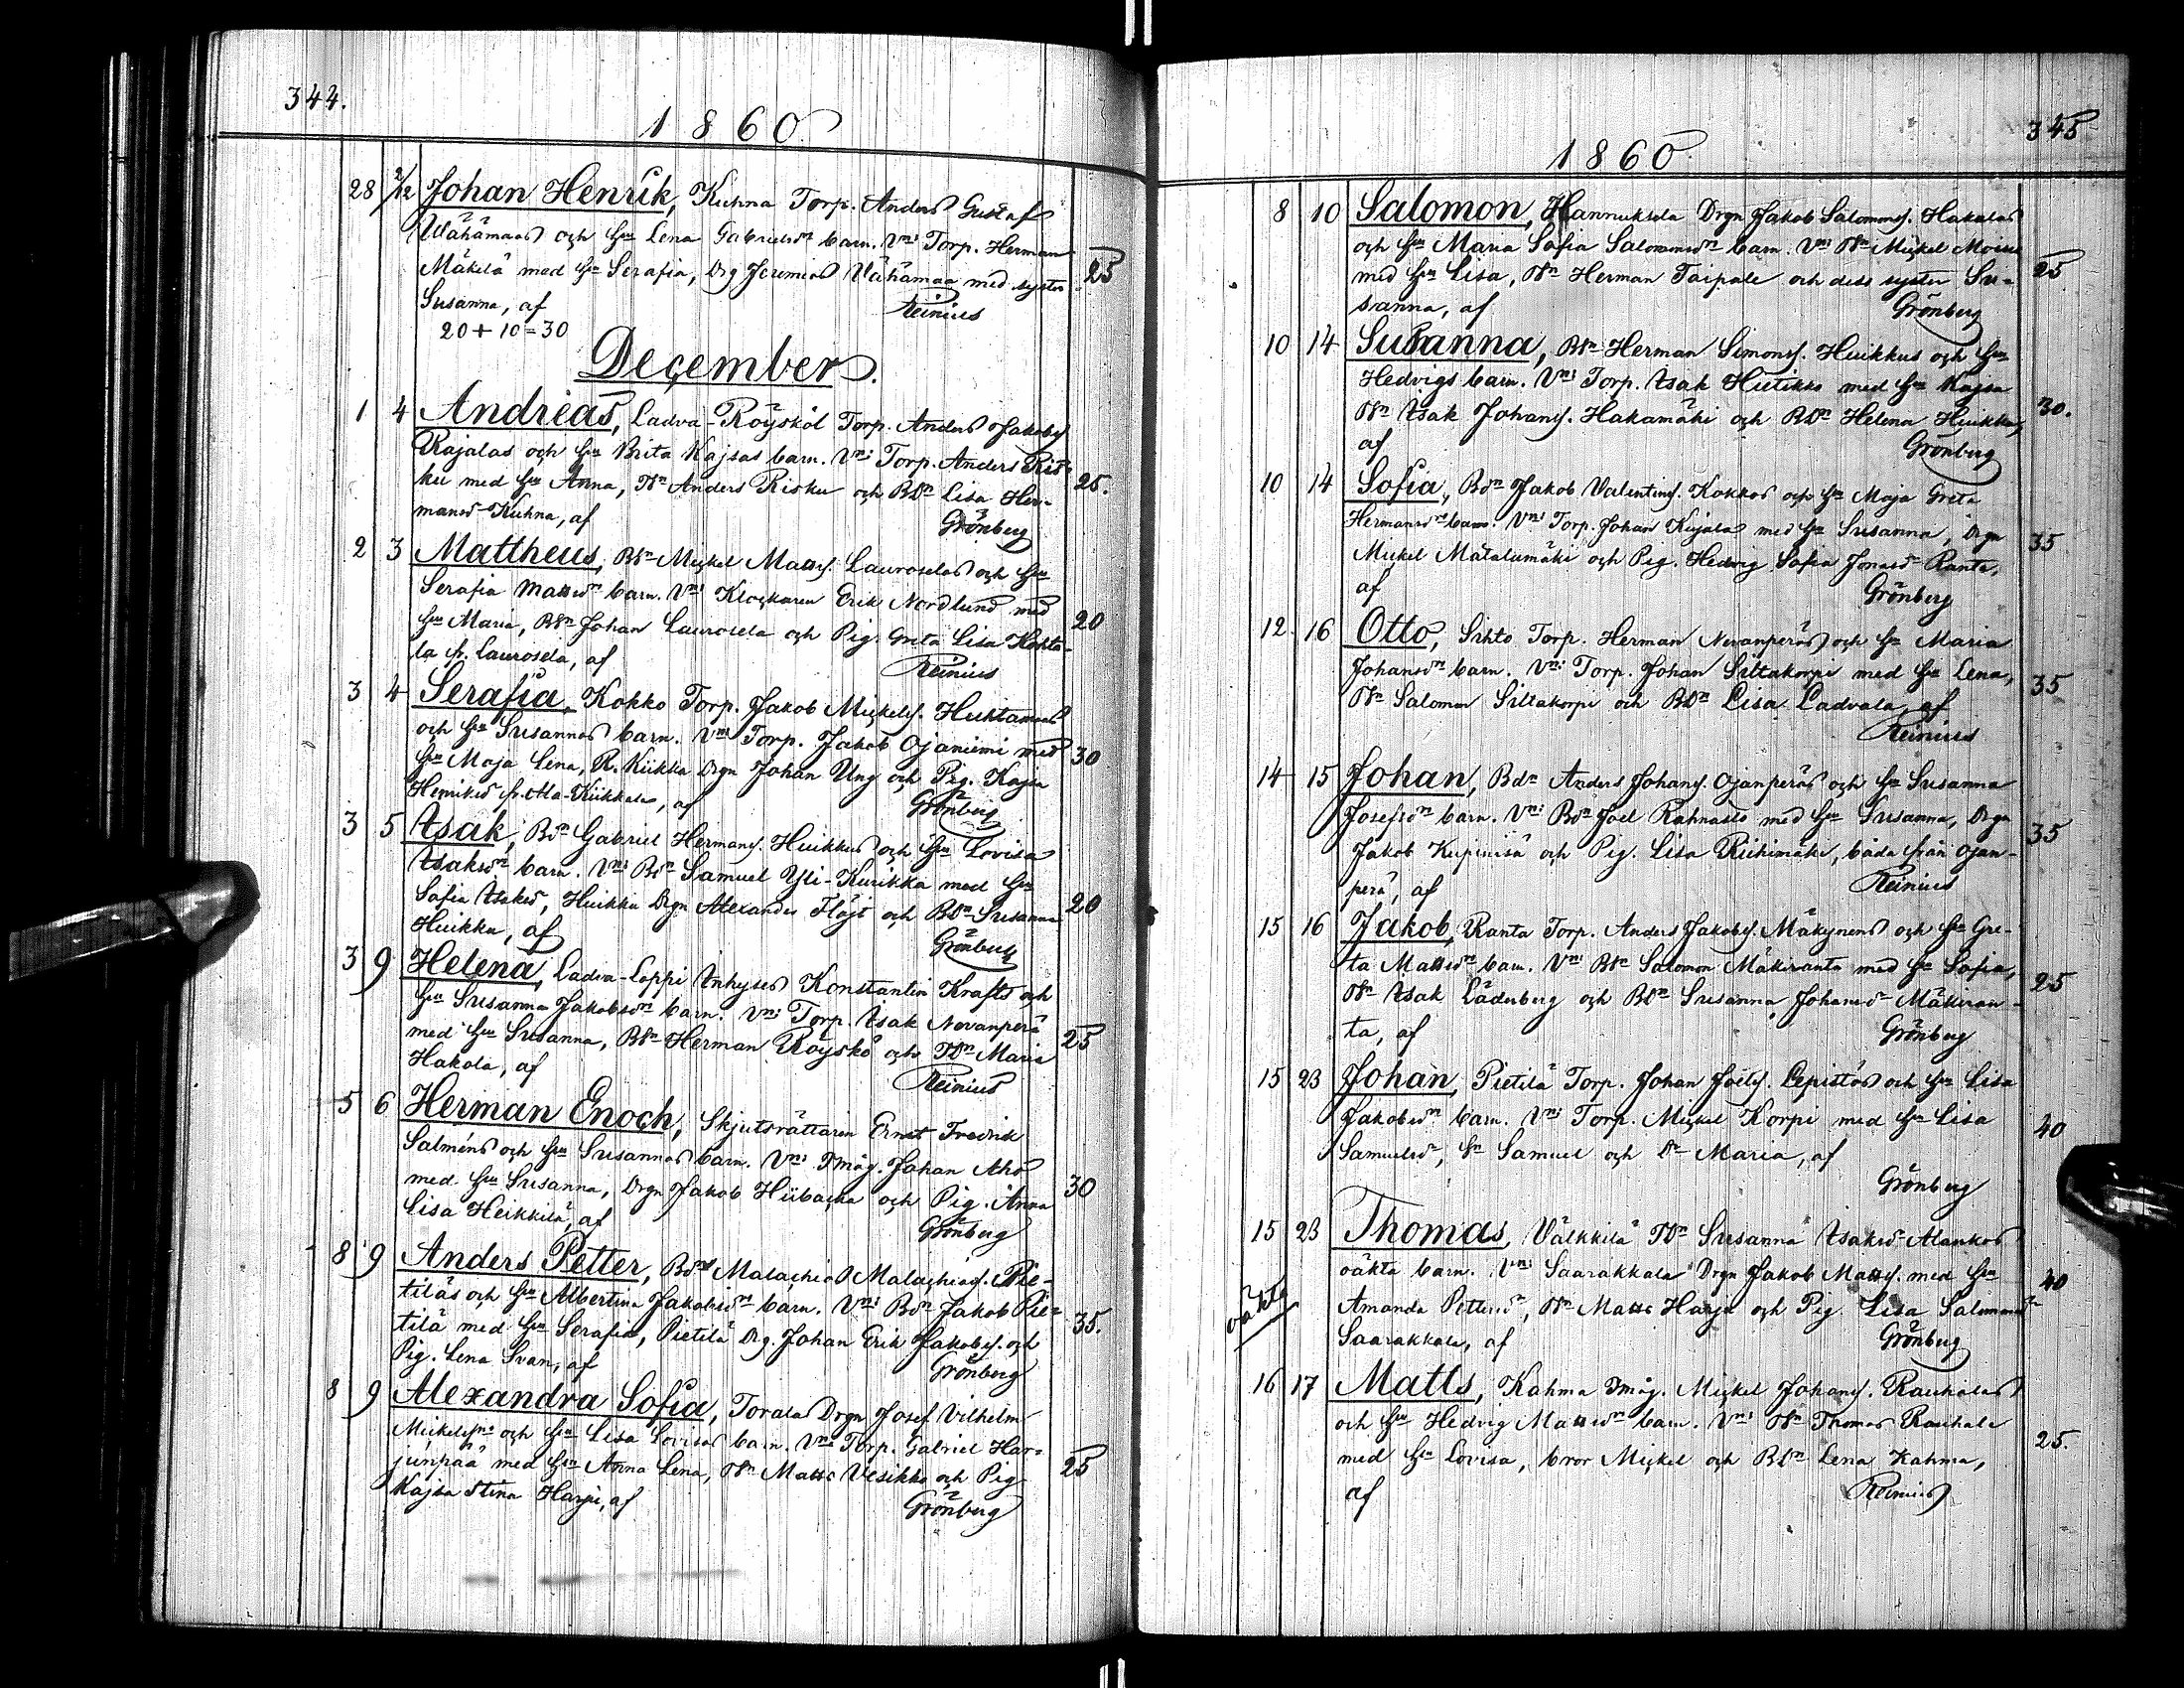 344.
1860.
28 2/12 Johan Henrik, Kuhna Torp. Anders Gustaf
Wähämaas och hu Lena Gabrielsdr barn. Vni Torp. Herman
Mäkelä med hu Serafia, Drg Jeremias Vähämaa med syster 25
Susanna, af Reinius
20+10=30
December.
1 4 Andreas, Ladva-Röysköl Torp. Anders Jakobs.
Rajalas och hu Brita Kajsas barn. Vni Torp. Anders Ris-
ku med hu Anna, Dn Anders Risku och Bdn Lisa Her- 25.
mansd Kuhna, af Grönberg
2 3 Mattheus, Bdn Mickel Matts. Lauroselas och hu
Serafia Mattsdr barn. Vni Klockaren Erik Nordlund med
hu Maria, Bdn Johan Laurosela och Pig. Greta Lisa Kohta- 20
la fr. Laurosela, af Reinius
3 4 Serafia, Kokko Torp. Jakob Mickels. Huhtamaas
och hu Susannas barn. Vni Torp. Jakob Ojaniemi med
hu Maja Lena, R. Kiikka Drgn Johan Ung och Pig. Kajsa 30
Henriksd fr. Ala-Kiikkala, af Grönberg
3 5 Isak, Bdn Gabriel Hermans. Huikkus och hu Lovisa
Isaksdr barn. Vni Bdn Samuel Yli-Kurikka med hu
Sofia Isaksd, Huikku Drgn Alexander Flöjt och Bdn Susanna 20
Huikku, af Grönberg
3 9 Helena, Ladva-Loppi Inhyses Konstantin Krafts och
hu Susanna Jakobsdr barn. Vni Torp. Isak Nevanperä
med hu Susanna, Bdn Herman Röyskö och Ddn Maria 25
Hakola, af Reinius
5 6 Herman Enoch, Skjutsrättaren Ernst Fredrik
Salméns och hu Susannas barn. Vni Imåg. Johan Aho
med hu Susanna, Drgn Jakob Hiibacka och Pig. Anna 30
Lisa Heikkilä, af Grönberg
8 9 Anders Petter, Bdns Malachias Malachias. Pie-
tiläs och hu Albertina Jakobsdr barn. Vni Bdn Jakob Pie-
tilä med hu Serafia, Pietilä Drg. Johan Erik Jakobs. och 35.
Pig. Lena Svan, af Grönberg
8 9 Alexandra Sofia, Torala Drgn Josef Vilhelm
Mickelsns och hu Lisa Lovisas barn. Vni Torp. Gabriel Har-
junpää med hu Anna Lena, Dn Matts Vesikko och Pig. 25
Kajsa Stina Harju, af Grönberg
345
1860.
8 10 Salomon, Hannuksela Drgn Jakob Salomons. Hakalas
och hu Maria Sofia Salomonsdr barn. Vni Dn Mickel Moisio
med hu Lisa, Dn Herman Taipale och dess syster Su- 25
sanna, af Grönberg
10 14 Susanna, Bdn Herman Simons. Huikkus och hu
Hedvigs barn. Vni Torp. Isak Hietikko med hu Kajsa
Dn Isak Johans. Hakamäki och Bdn Helena Huikku, 30.
af Grönberg
10 14 Sofia, Bdn Jakob Valentins. Kokkos och hu Maja Greta
Hermansdr barn. Vni Torp. Johan Kujala med hu Susanna, Drgn
Mickel Matalamäki och Pig. Hedvig Sofia Jonasd Ranta, 35
af Grönberg
12. 16 Otto, Sihto Torp. Herman Nevanperäs och hu Maria
Johansdr barn. Vni Torp. Johan Siltakorpi med hu Lena,
Dn Salomon Siltakorpi och Bdn Lisa Ladvala, af 35
Reinius
14 15 Johan, Bdn Anders Johans. Ojanperäs och hu Susanna
Josefsdr barn. Vni Bdn Joel Rahnasto med hu Susanna, Drgn
Jakob Kupinisä och Pig. Lisa Riihimäki, båda från Ojan- 35
perä, af Reinius
15 16 Jakob, Ranta Torp. Anders Jakobs. Mäkynens och hu Gre-
ta Mattsdr barn. Vni Bdn Salomon Mäkiranta med hu Sofia,
Dn Isak Läderberg och Bdn Susanna Johansd Mäkiran- 25
ta, af Grönberg
15 23 Johan, Pietilä Torp. Johan Joels. Lepistös och hu Lisa
Jakobsdr barn. Vni Torp. Mickel Korpi med hu Lisa
Samuelsd, Sn Samuel och Dr Maria, af 40
Grönberg
15 23 Thomas, Välkkilä Ddn Susanna Isaksd Alankos
oäkta barn. Vni Saarakkala Drgn Jakob Matts. med hu
oäkta Amanda Pettersd, Dn Matts Harju och Pig. Lisa Salomonsd 40
Saarakkala, af Grönberg
16 17 Matts, Kahma Imåg. Mickel Johans. Rauhalas
och hu Hedvig Mattsdr barn. Vni Dn Thomas Rauhala
med hu Lovisa, bror Mickel och Bdn Lena Kahma, 25.
af Reinius